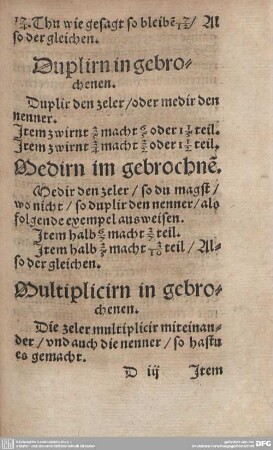 Thu wie gesagt so bleibẽ / Al
so der gleichen.
Duplirn in gebro-
chenen.
Duplir den zeler / oder medir den
nenner.
Item zwirnt macht oder teil.
Item zwirnt macht oder teil.
Medirn im gebrochnẽ.
Medir den zeler / so du magst /
wo nicht / so duplir den nenner / als
folgende exempel ausweisen.
Item halb macht teil.
Item halb macht teil / Al-
so der gleichen.
Multiplicirn in gebro-
chenen.
Die zeler multiplicir miteinan-
der / vnd auch die nenner / so hastu
es gemacht.
D iij Item
DFG